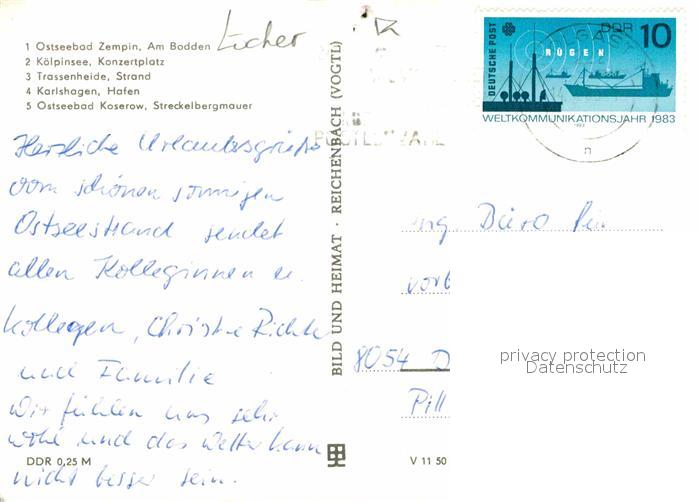 1 Ostseebad Zempin, Am Bodden
2 Kölpinsee, Konzertplatz
3 Trassenheide, Strand
4 Karlshagen, Hafen
5 Ostseebad Koserow, Streckelbergmauer
Herzliche Urlaubsgrüße
vom schönen sonnigen
Ostseestrand sendet
allen Kolleginnen u.
Kollegen, Christa Richter
und Familie
Wir fühlen uns sehr
wohl und das Wetter kann
nicht besser sein.
DDR 0,25 M
BILD UND HEIMAT · REICHENBACH (VOGTL)
V 11 50
DEUTSCHE POST
DDR 10
RÜGEN
WELTKOMMUNIKATIONSJAHR 1983
1983
n
Büro
8054 D
Pill
privacy protection
Datenschutz